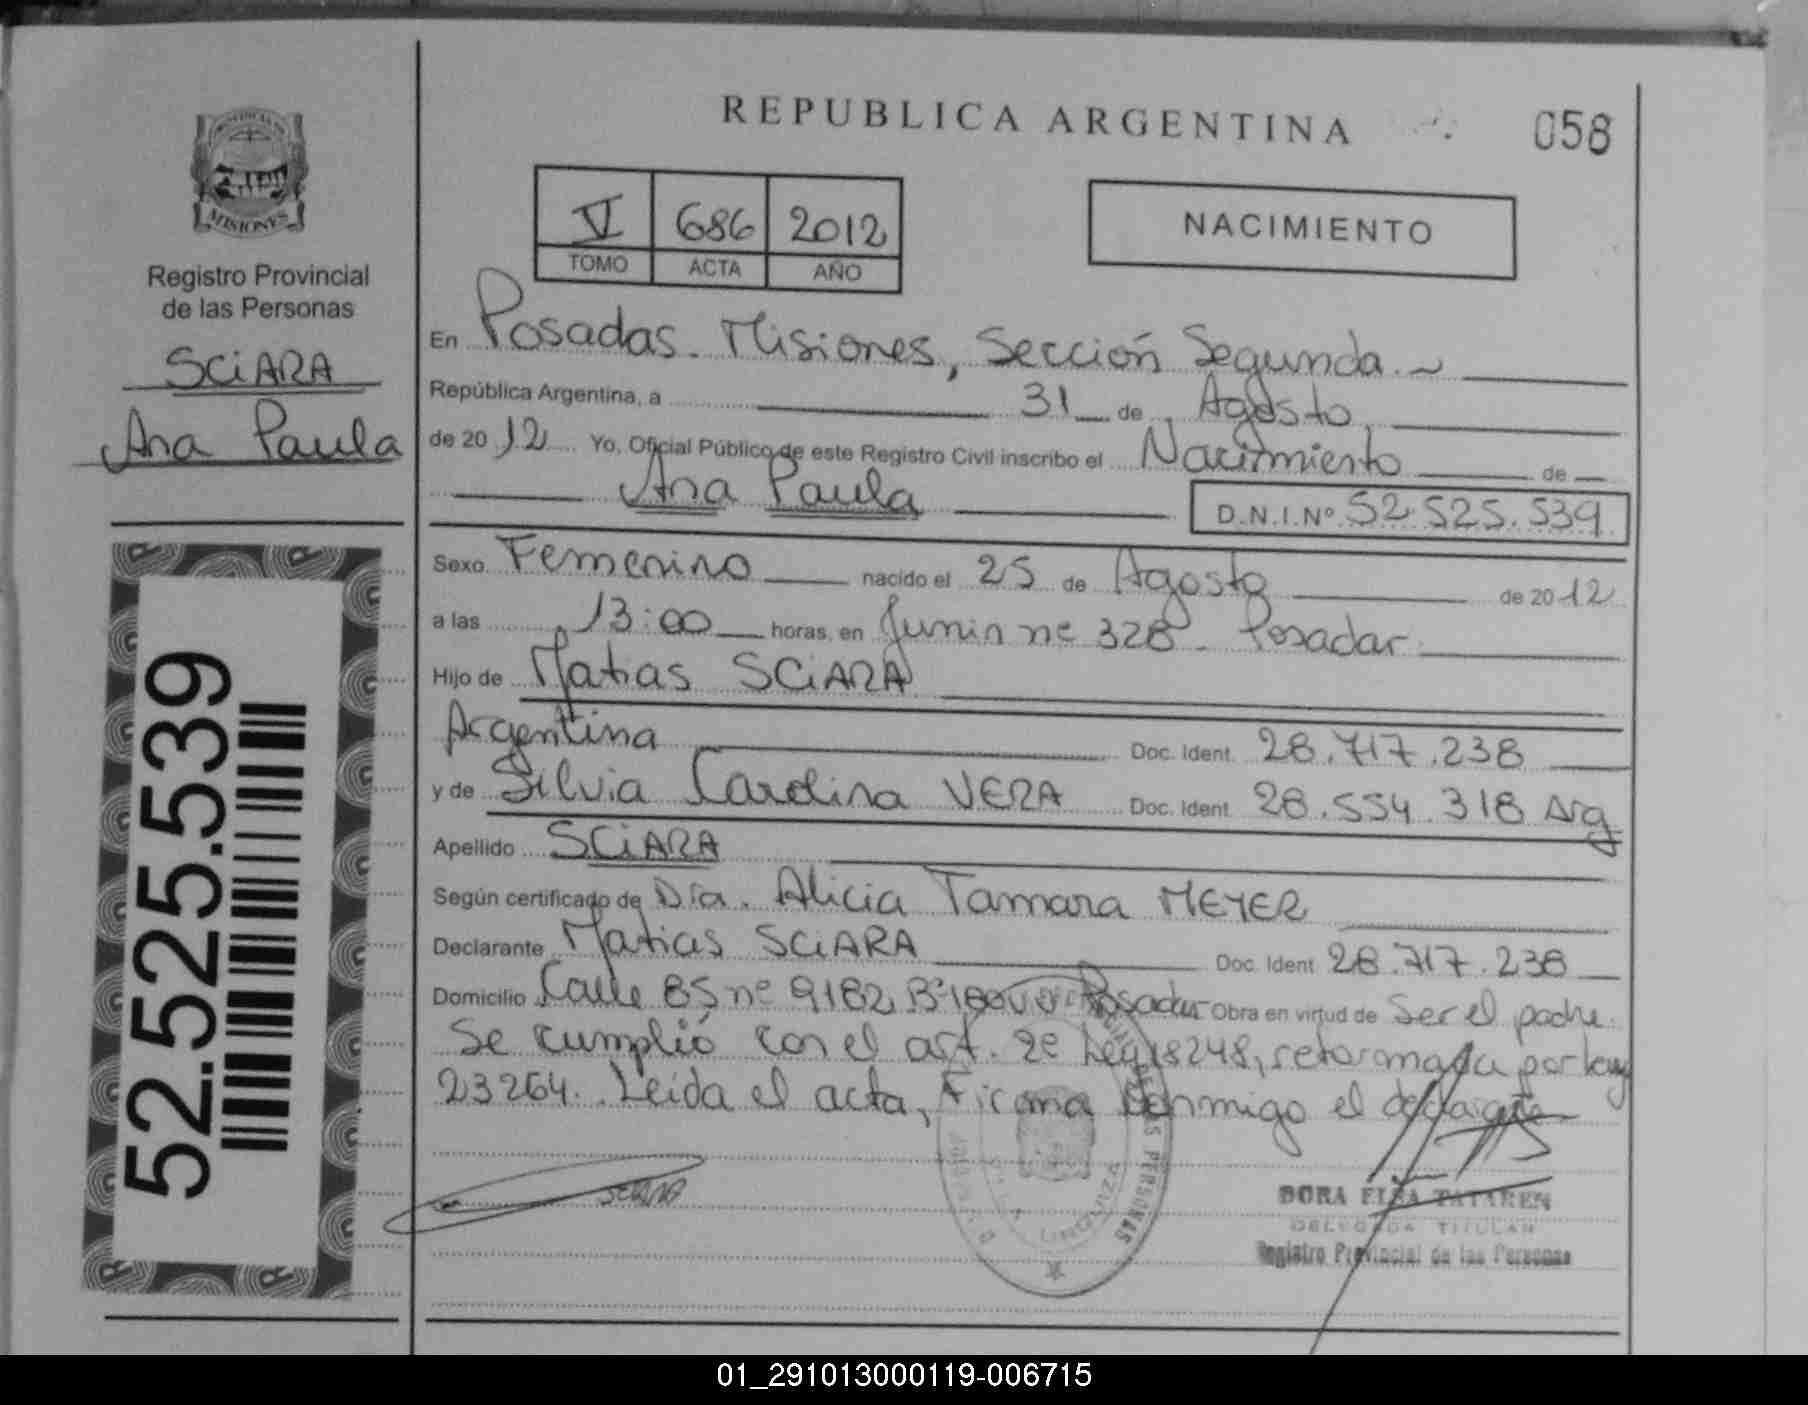 REPUBLICA ARGENTINA
058
MISIONES
Registro Provincial
de las Personas
SCiARA
Ana Paula
V 686 2012
TOMO ACTA AÑO
NACIMIENTO
En Posadas. Misiones, Sección Segunda.
República Argentina, a 31 de Agosto
de 2012 Yo, Oficial Público de este Registro Civil inscribo el Nacimiento de
Ana Paula D.N.I.Nº 52.525.539
Sexo Femenino nacido el 25 de Agosto de 2012
a las 13:00 horas, en Junin nº 328 - Posadas.
Hijo de Matias SCiARA
Argentina Doc. Ident. 28.717.238
y de Silvia Carolina VERA Doc. Ident. 28.554.318 Arg
Apellido SCiARA
Según certificado de Dra. Alicia Tamara MEYER
Declarante Matias SCiARA Doc. Ident 28.717.238
Domicilio Calle 85 nº 9182 Posadas Obra en virtud de Ser el padre.
Se cumplió con el art. 2º Ley 18248, reformada por Ley
23264. Leida el acta, Firma conmigo el declarante
SCIARA
DORA ELSA TATAREN
DELEGADA TITULAR
Registro Provincial de las Personas
DE LAS PERSONAS
52.525.539
01_291013000119-006715